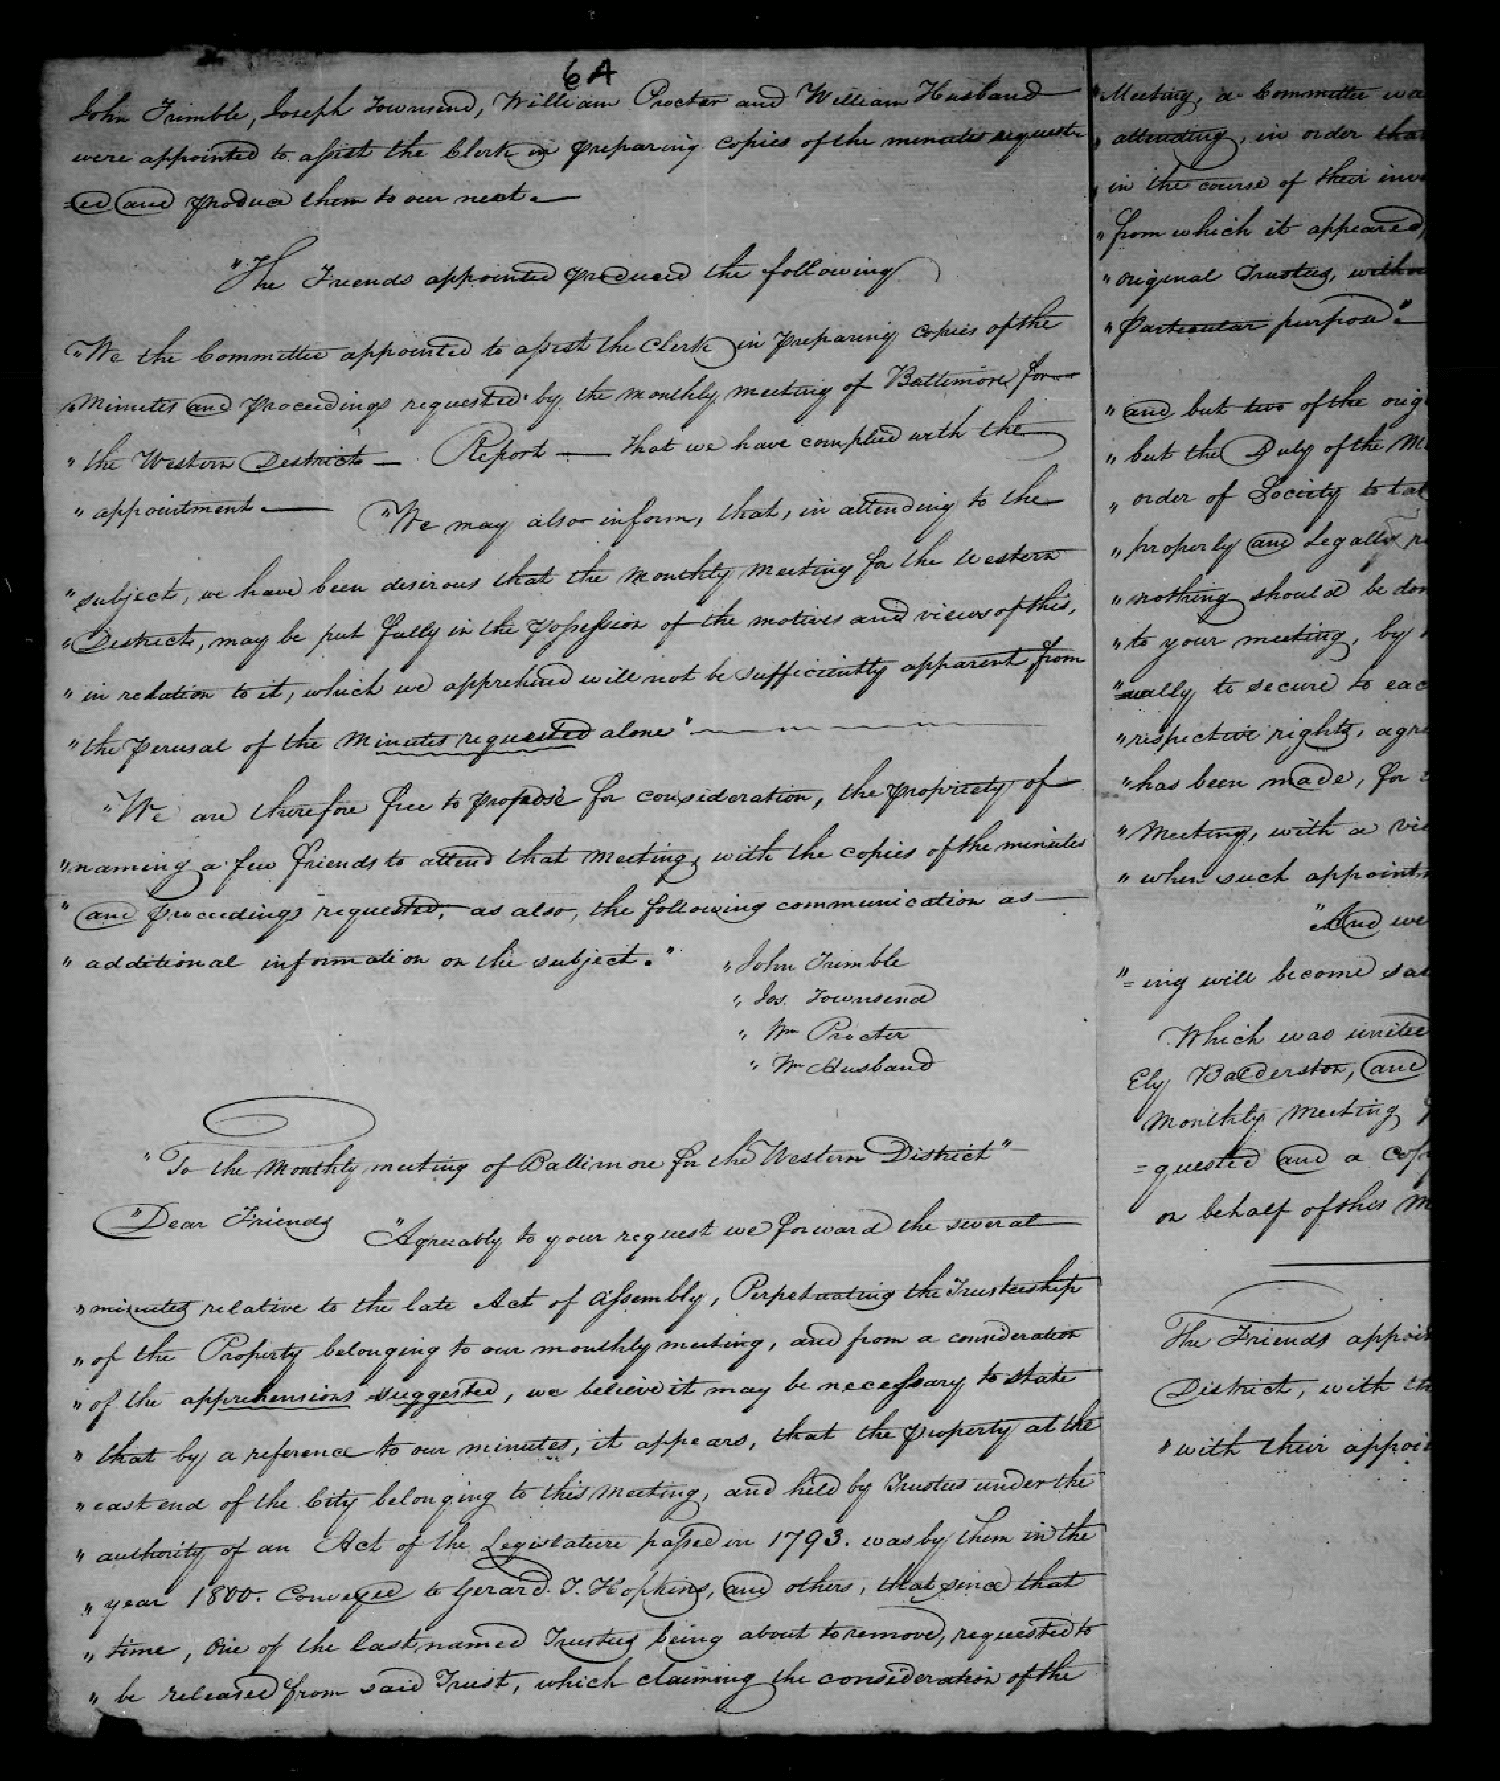 6A
John Trimble, Joseph Townsend, William Procter and William Husband
were appointed to assist the Clerk in preparing copies of the minutes request-
=ed and produce them to our next.
"The Friends appointed produced the following
"We the Committee appointed to assist the Clerk in preparing copies of the
"Minutes and Proceedings requested by the monthly meeting of Baltimore for
" the Western District — Report — That we have complied with the
" appointment. — "We may also inform, that, in attending to the
" subject, we have been desirous that the Monthly Meeting for the Western
" District, may be put fully in the possession of the motives and views of this,
" in relation to it, which we apprehend will not be sufficiently apparent from
" the perusal of the Minutes requested alone"
"We are therefore free to propose for consideration, the propriety of
" naming a few friends to attend that Meeting, with the copies of the minutes
" and proceedings requested, as also, the following communication as
" additional information on the subject."
" John Trimble
" Jos. Townsend
" Wm Procter
" Wm Husband
"To the Monthly meeting of Baltimore for the Western District"
"Dear Friends "Agreeably to your request we forward the several
" minutes relative to the late Act of Assembly, Perpetuating the Trusteeship
" of the Property belonging to our monthly meeting, and from a consideration
" of the apprehensions suggested, we believe it may be necessary to state
" that by a reference to our minutes, it appears, that the property at the
" east end of the City belonging to this Meeting, and held by Trustees under the
" authority of an Act of the Legislature passed in 1793. was by them in the
" year 1800. Conveyed to Gerard T. Hopkins, and others, that since that
" time, one of the last named Trustees being about to remove, requested to
" be released from said Trust, which claiming the consideration of the
" Meeting, a Committee wa
" attending, in order that
" in the course of their inv
" from which it appeared,
" original Trustees, witho
" Particular purpose".
" and but two of the orig
" but the Duty of the M
" order of Society to ta
" properly and Legally r
" nothing should be don
" to your meeting, by
"=ually to secure to eac
" respective rights, agre
" has been made, for
" Meeting, with a vie
" when such appoint
"And we
"=ing will become sa
Which was united
Ely Balderston, and
Monthly Meeting
=quested and a cop
on behalf of this M
The Friends appoin
District, with th
" with their appoi